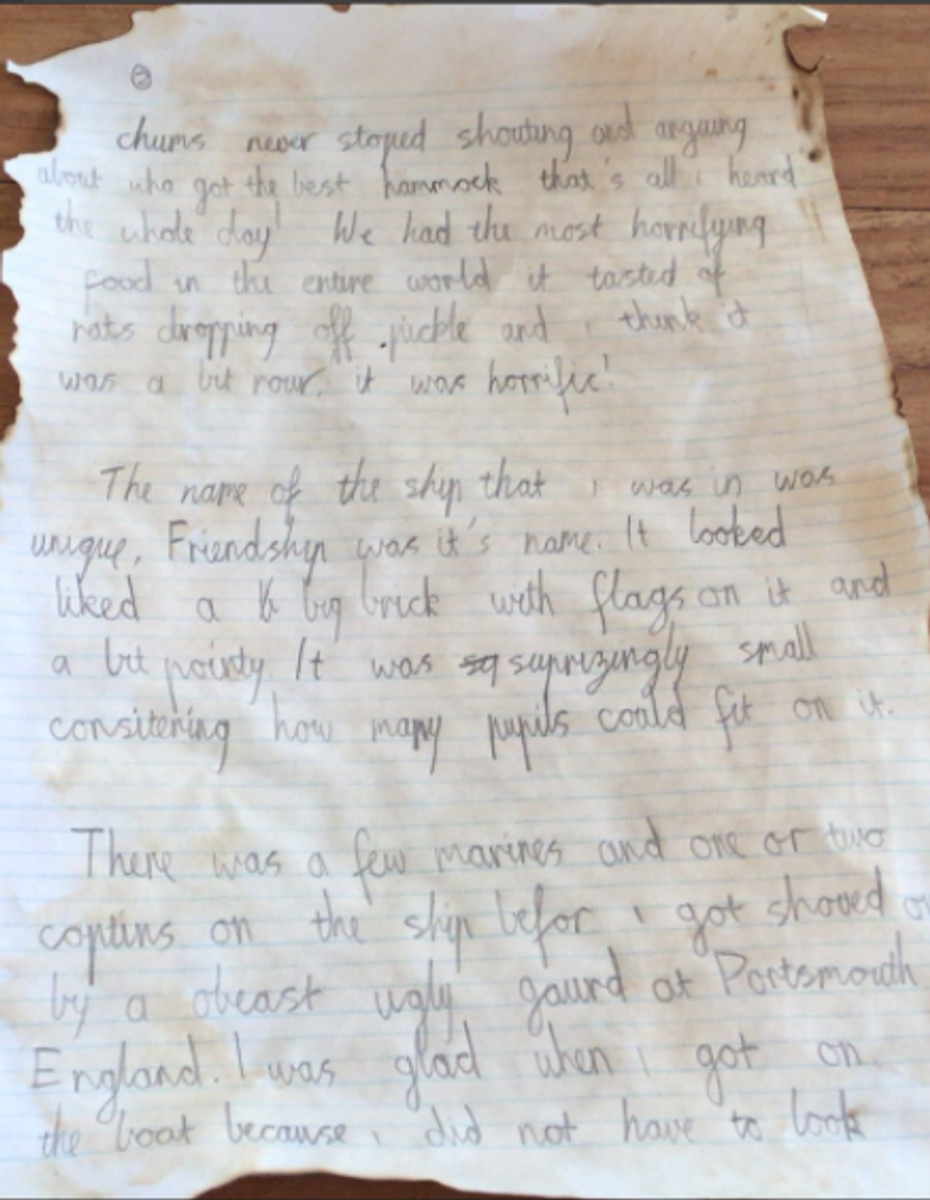 ②
chums never stoped shouting and arguing
about who got the best hammock that's all i heard
the whole day! We had the most horrifying
food in the entire world it tasted of
rats dropping off pickle and i think it
was a bit rour. it was horrific!
The name of the ship that i was in was
unique, Friendship was it's name. It looked
liked a big brick with flags on it and
a bit pointy It was suprizingly small
consitering how many pupils could fit on it.
There was a few marines and one or two
coptins on the ship befor i got shoved on
by a obeast ugly gaurd at Portsmouth
England. I was glad when i got on
the boat because i did not have to look